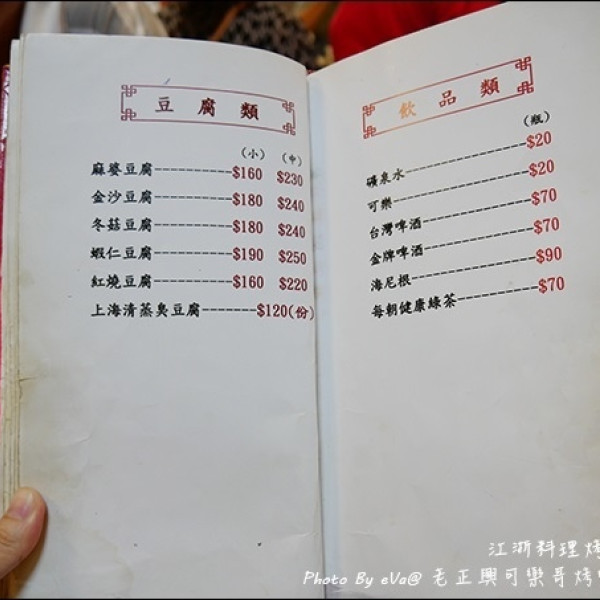 豆腐類
(小) (中)
麻婆豆腐------------$160 $230
金沙豆腐------------$180 $240
冬菇豆腐------------$180 $240
蝦仁豆腐------------$190 $250
紅燒豆腐------------$160 $220
上海清蒸臭豆腐--------$120(份)
飲品類
(瓶)
礦泉水------------------$20
可樂--------------------$20
台灣啤酒----------------$70
金牌啤酒----------------$70
海尼根------------------$90
每朝健康綠茶------------$70
江浙料理烤
Photo By eVa@ 老正興可樂哥烤